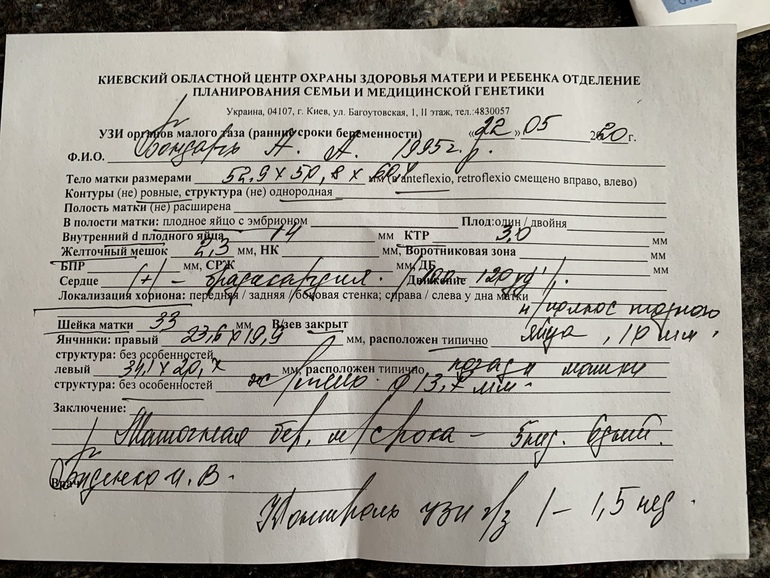 КИЕВСКИЙ ОБЛАСТНОЙ ЦЕНТР ОХРАНЫ ЗДОРОВЬЯ МАТЕРИ И РЕБЕНКА ОТДЕЛЕНИЕ
ПЛАНИРОВАНИЯ СЕМЬИ И МЕДИЦИНСКОЙ ГЕНЕТИКИ
Украина, 04107, г. Киев, ул. Багоутовская, 1, II этаж, тел.:4830057
УЗИ органов малого таза (ранние сроки беременности) «22» 05 2020 г.
Ф.И.О. Бондарь А. А. 1995 г.р.
Тело матки размерами 52,9 х 50,8 х мм (в anteflexio, retroflexio смещено вправо, влево)
Контуры (не) ровные, структура (не) однородная
Полость матки (не) расширена
В полости матки: плодное яйцо с эмбрионом Плод: один / двойня
Внутренний d плодного яйца 14 мм КТР 3,0 мм
Желточный мешок 2,3 мм, НК мм, Воротниковая зона мм
БПР мм, СРЖ мм, ДБ мм
Сердце (+) – брадикардия. 100 - 120 уд/ Движение
Локализация хориона: передняя / задняя / боковая стенка; справа / слева у дна матки
н/полюс плодного
Шейка матки 33 мм В/зев закрыт
яйца, 10 мм.
Янчики: правый 23,6 х 19,9 мм, расположен типично
структура: без особенностей
левый 34,1 х 20,7 мм, расположен типично позади матки
структура: без особенностей ж/тело. ф 13,7 мм.
Заключение:
Маточная бер. м/срока – 5 нед. 6 дней.
Врач
Контроль узи ч/з 1 – 1,5 нед.